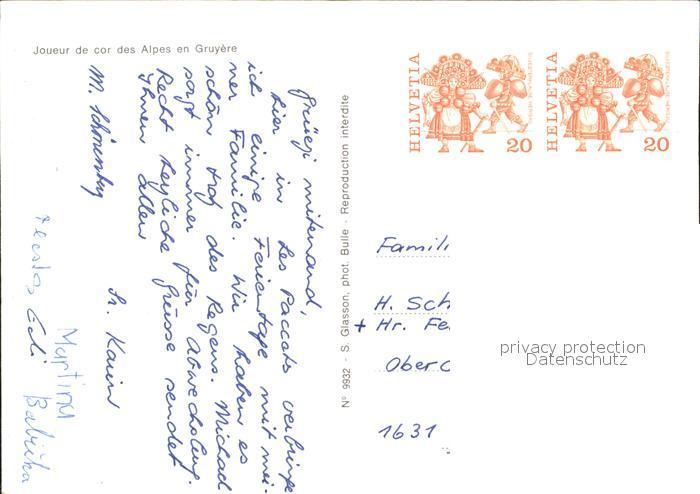 Joueur de cor des Alpes en Gruyère
Grüezi mitenand,
hier in Les Paccots verbringe
ich einige Ferientage mit mei-
ner Familie. Wir haben es
schön trotz des Regens. Michael
sorgt immer für Abwechslung.
Recht herzliche Grüsse sendet
Ihnen allen
Sr. Karin
M. Schönenberg
Edi
Martina
Babrika
N° 9932 - S. Glasson, phot. Bulle - Reproduction interdite
HELVETIA 20
HELVETIA 20
Famili
H. Sch
+ Hr. Fe
Ober
1631
privacy protection
Datenschutz